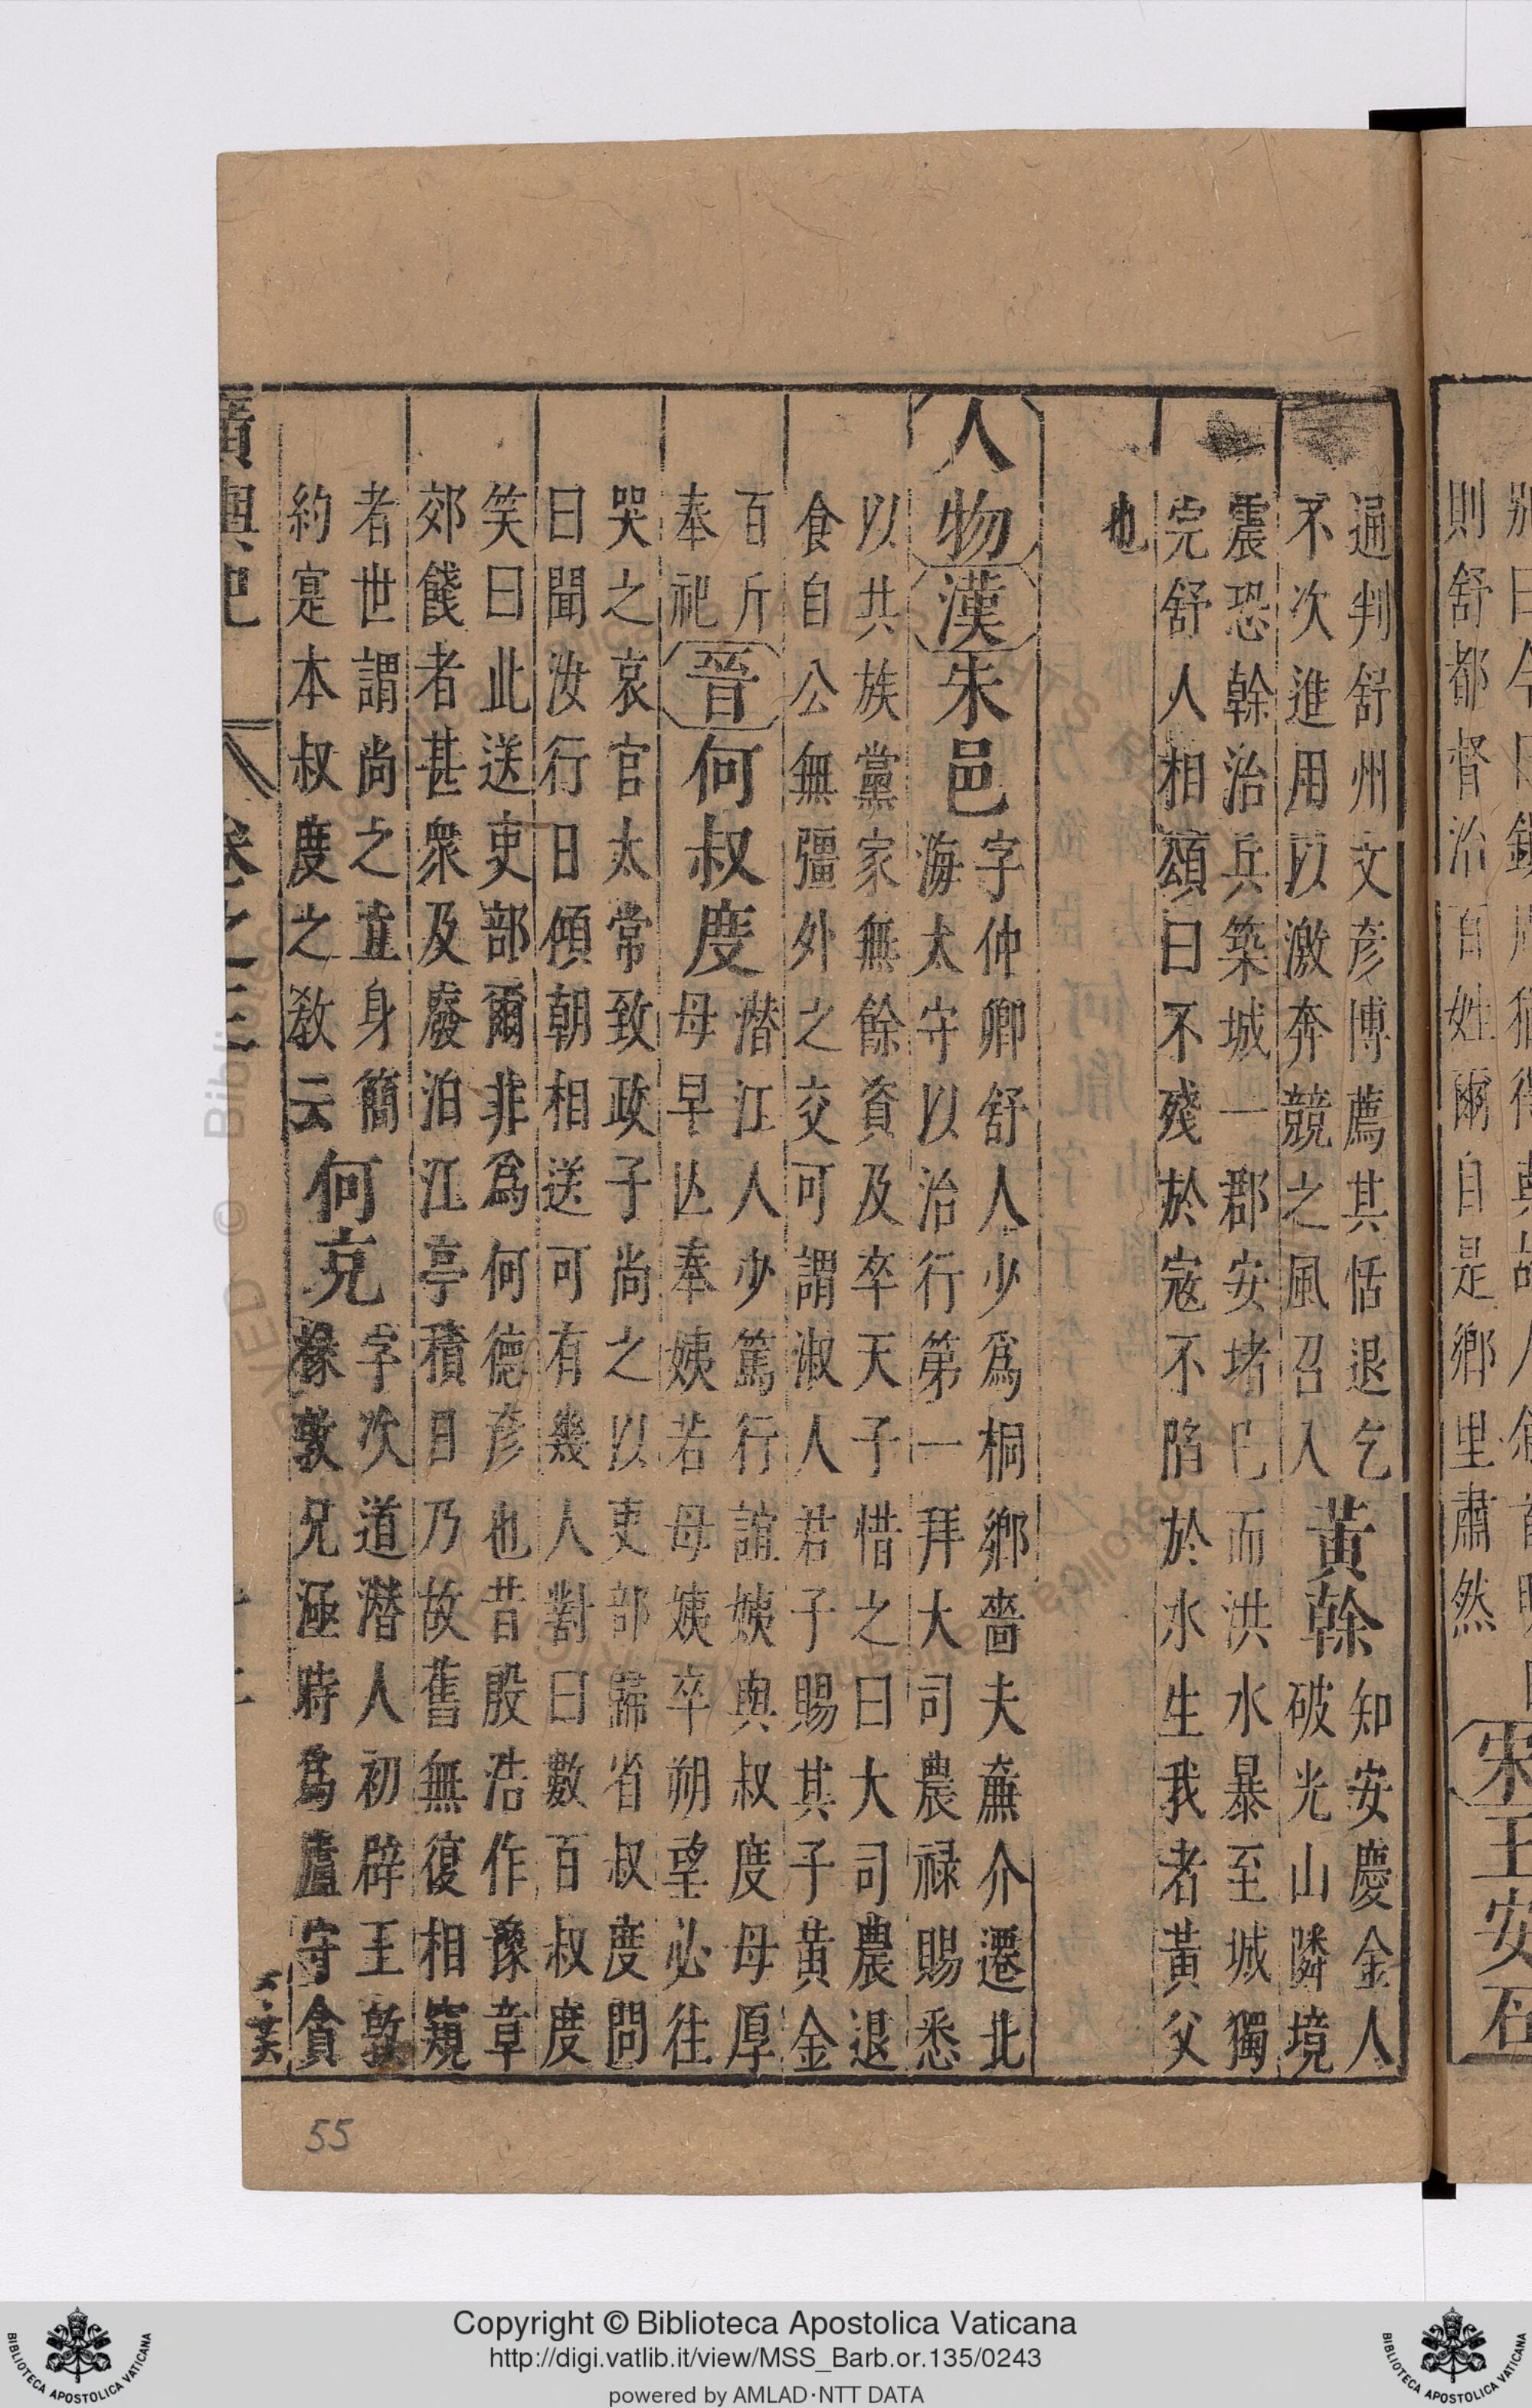 則舒都督治百姓爾自是鄉里肅然
宋王安石
通判舒州文彥博薦其恬退乞
不次進用以激奔競之風召入
黃榦
知安慶金人
破光山隣境
震恐榦治兵築城一郡安堵已而洪水暴至城獨
完舒人相頌曰不殘於寇不陷於水生我者黃父
也
人物漢朱邑
字仲卿舒人少爲桐鄉嗇夫亷介遷北
海太守以治行第一拜大司農祿賜悉
以共族黨家無餘資及卒天子惜之曰大司農退
食自公無彊外之交可謂淑人君子賜其子黃金
百斤
奉祀
晉何叔度
潛江人少篤行誼姨與叔度母厚
母早亾奉姨若母姨卒朔望必往
哭之哀官太常致政子尚之以吏部歸省叔度問
曰聞汝行日傾朝相送可有幾人對曰數百叔度
笑曰此送吏部爾非爲何德彥也昔殷浩作豫章
郊餞者甚衆及廢泊江亭積日乃故舊無復相窺
者世謂尚之立身簡
約寔本叔度之敎云
何充
字次道潛人初辟王敦
掾敦兄涵時爲廬守貪
廣輿記
卷之三
Copyright © Biblioteca Apostolica Vaticana
http://digi.vatlib.it/view/MSS_Barb.or.135/0243
powered by AMLAD·NTT DATA
BIBLIOTECA APOSTOLICA VATICANA
BIBLIOTECA APOSTOLICA VATICANA
55